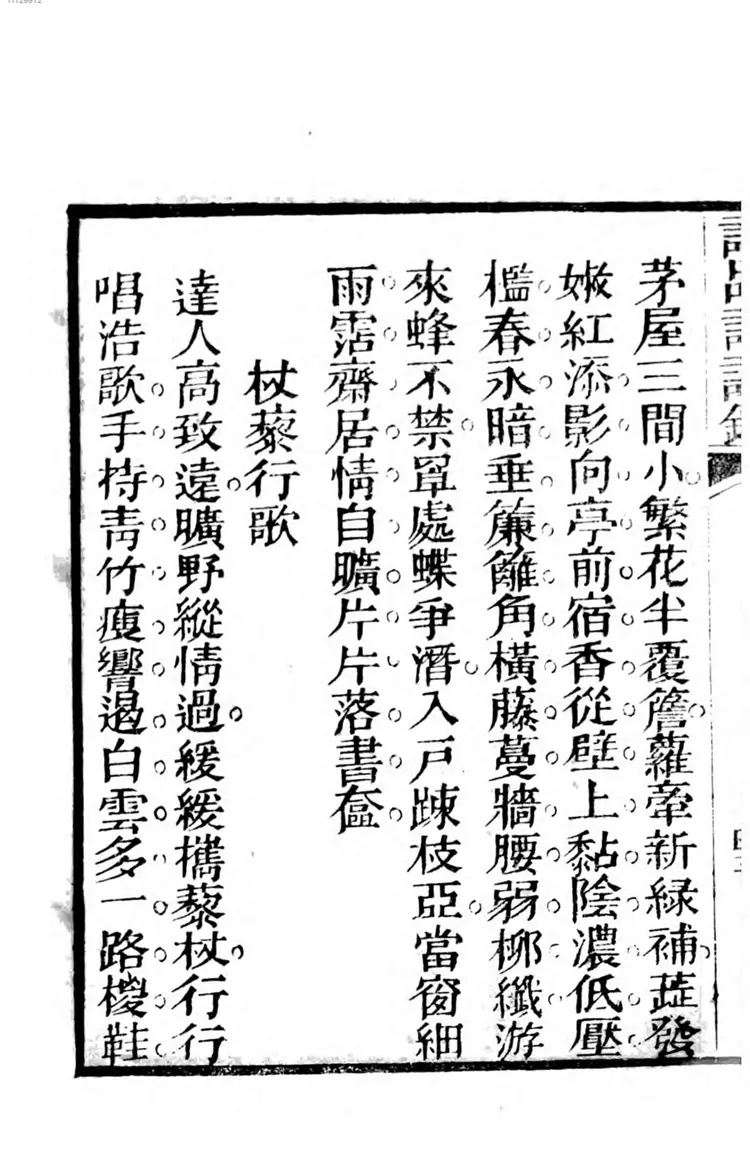 11129912
茅屋三間小繁花半覆簷蘿牽新緑補蕋發
嫩紅添影向亭前宿香從壁上黏陰濃低壓
檻春永暗垂簾籬角橫藤蔓牆腰弱柳纖游
來蜂不禁罩處蝶爭潛入戸踈枝亞當窗細
雨霑齋居情自曠片片落書奩
杖藜行歌
達人高致遠曠野縱情過緩緩攜藜杖行行
唱浩歌手持靑竹瘦響遏白雲多一路椶鞋